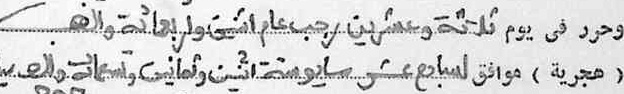 وحرر فى يوم ثلاثة وعشرين رجب عام اثنين واربعمائة والف
( هجرية ) موافق لسابع عشر مايو سنة اثنين وثمانين وتسعمائة والف